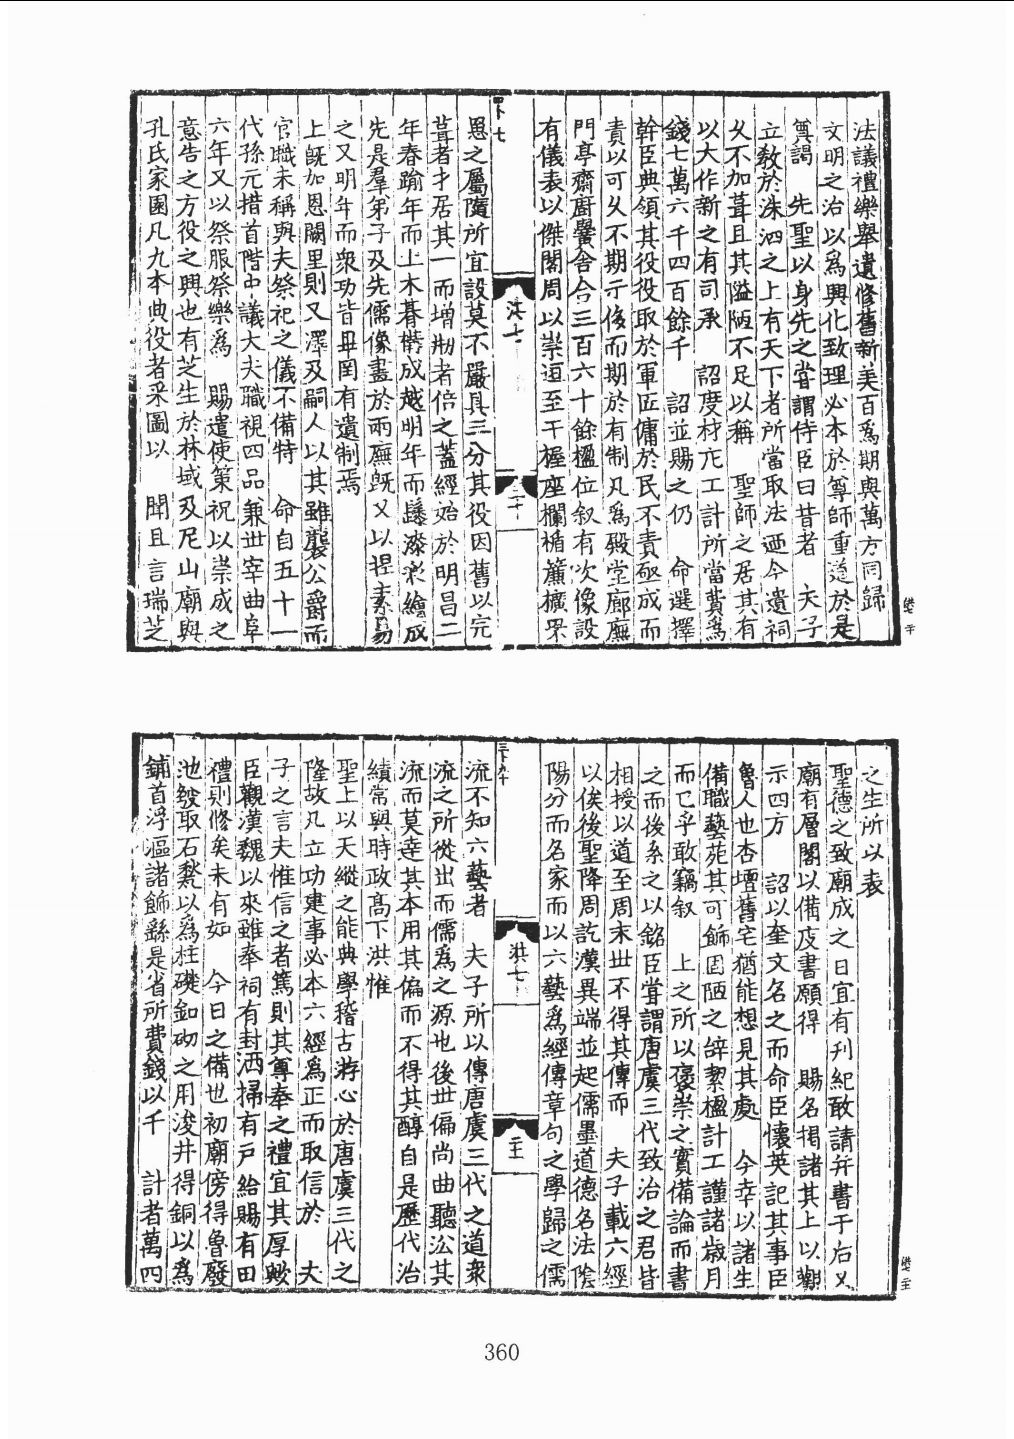 法議禮樂舉遺修舊新美百爲期與萬方同歸
文明之治以爲興化致理必本於尊師重道於是
奠謁　先聖以身先之嘗謂侍臣曰昔者　夫子
立教於洙泗之上有天下者所當取法迺今遺祠
久不加葺且其隘陋不足以稱　聖師之居其有
以大作新之有司承　詔度材庀工計所當費爲
錢七萬六千四百餘千　詔並賜之仍　命選擇
幹臣典領其役役取於軍匠傭於民不責亟成而
責以可久不期示侈而期於有制凡爲殿堂廊廡
門亭齋廚黌舍合三百六十餘楹位叙有次像設
有儀表以傑閣周以崇垣至于楃座欄楯簾櫎罘
罳之屬隨所宜設莫不嚴具三分其役因舊以完
葺者才居其一而增刱者倍之蓋經始於明昌二
年春踰年而土木朞搆成越明年而髹漆彩繪成
先是羣弟子及先儒像畫於兩廡既又以捏素易
之又明年而衆功皆畢罔有遺制焉
上既加恩闕里則又澤及嗣人以其雖襲公爵而
官職未稱與夫祭祀之儀不備特　命自五十一
代孫元措首階中議大夫職視四品兼世宰曲阜
六年又以祭服祭樂爲　賜遣使策祝以崇成之
意告之方役之興也有芝生於林域及尼山廟與
孔氏家園凡九本典役者采圖以　聞且言瑞芝
洪七
二十
之生所以表
聖德之致廟成之日宜有刊紀敢請并書于石又
廟有層閣以備庋書願得　賜名揭諸其上以觀
示四方　詔以奎文名之而命臣懷英記其事臣
魯人也杏壇舊宅猶能想見其處　今幸以諸生
備職藝苑其可飾固陋之辞絜楹計工謹諸歲月
而已乎敢竊叙　上之所以褒崇之實備論而書
之而後系之以銘臣嘗謂唐虞三代致治之君皆
相授以道至周末世不得其傳而　夫子載六經
以俟後聖降周訖漢異端並起儒墨道德名法陰
陽分而名家而以六藝爲經傳章句之學歸之儒
流不知六藝者　夫子所以傳唐虞三代之道衆
流之所從出而儒爲之源也後世偏尚曲聽沿其
流而莫達其本用其偏而不得其醇自是歷代治
績常與時政髙下洪惟
聖上以天縱之能典學稽古游心於唐虞三代之
隆故凡立功建事必本六經爲正而取信於　夫
子之言夫惟信之者篤則其尊奉之禮宜其厚歟
臣觀漢魏以來雖奉祠有封洒掃有戸給賜有田
禮則修矣未有如　今日之備也初廟傍得魯廢
池發取石甃以爲柱礎釦砌之用浚井得銅以爲
鋪首浮漚諸飾繇是省所費錢以千　計者萬四
洪七
二十一
360